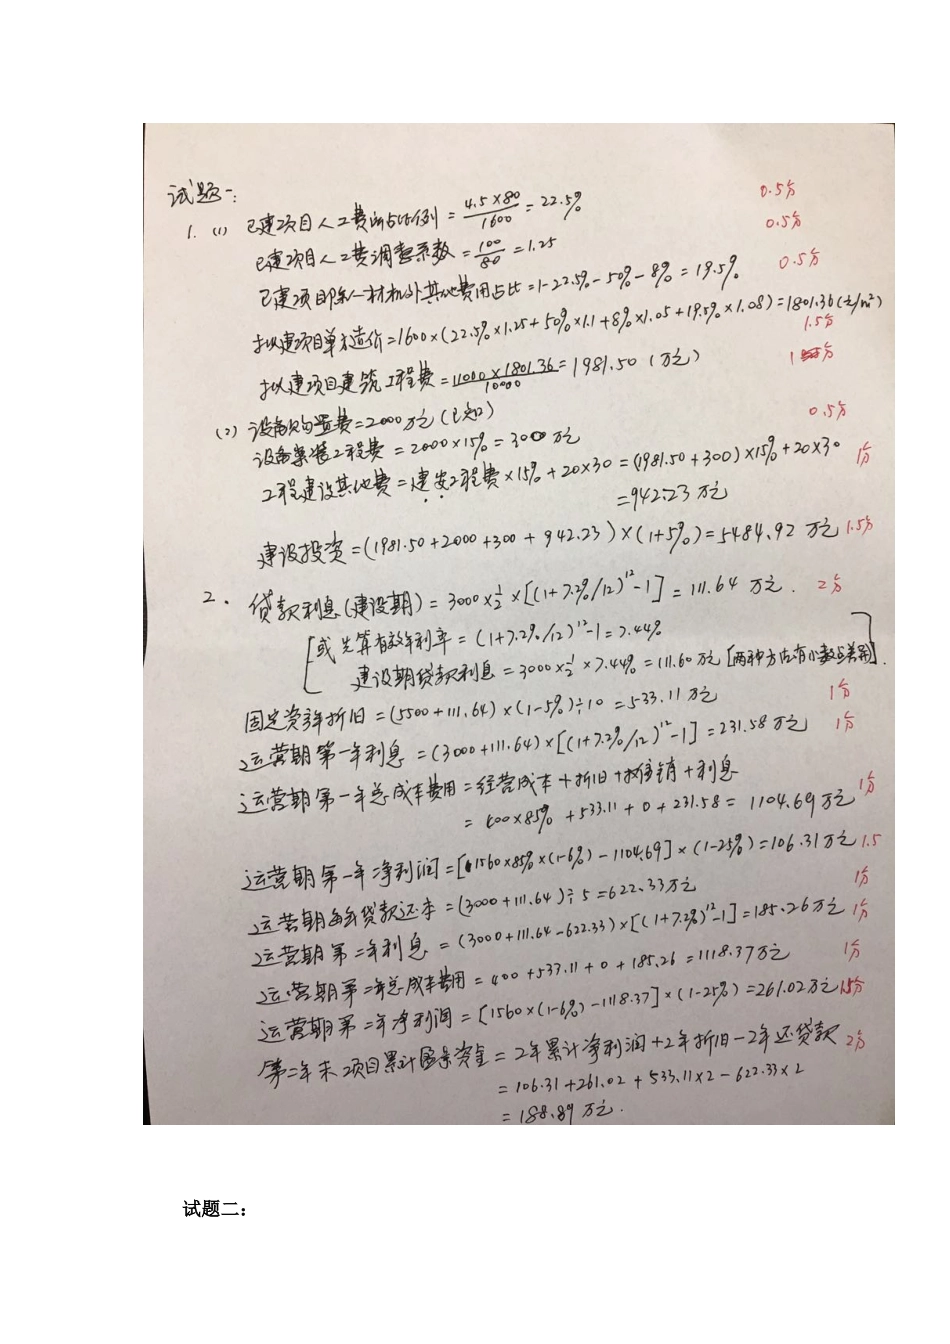 试题一：
1. (1) 已建项目人工费所占比例 = 4.5×80/1600 = 22.5% 0.5分
已建项目人工费调整系数 = 100/80 = 1.25 0.5分
已建项目除人材机外其他费用占比 = 1-22.5%-50%-8% = 19.5% 0.5分
拟建项目单方造价 = 1600×(22.5%×1.25+50%×1.1+8%×1.05+19.5%×1.08) = 1801.36 (元/m²) 1.5分
拟建项目建筑工程费 = 11000×1801.36/10000 = 1981.50 (万元) 1分
(2) 设备购置费 = 2000万元 (已知)
设备安装工程费 = 2000×15% = 300 万元 0.5分
工程建设其他费 = 建安工程费×15%+20×30 = (1981.50+300)×15%+20×30 1分
= 942.23 万元
建设投资 = (1981.50+2000+300+942.23)×(1+5%) = 5484.92 万元 1.5分
2. 贷款利息(建设期) = 3000×1/2×[(1+7.2%/12)¹²-1] = 111.64 万元. 2分
[或先算有效年利率 = (1+7.2%/12)¹²-1 = 7.44%
建设期贷款利息 = 3000×1/2×7.44% = 111.60万元 [两种方法有小数点差别].
固定资产年折旧 = (5500+111.64)×(1-5%)÷10 = 533.11万元 1分
运营期第一年利息 = (3000+111.64)×[(1+7.2%/12)¹²-1] = 231.58万元 1分
运营期第一年总成本费用 = 经营成本+折旧+摊销+利息
= 400×85%+533.11+0+231.58 = 1104.69 万元 1分
运营期第一年净利润 = [1560×85%×(1-6%)-1104.69]×(1-25%) = 106.31万元 1.5
运营期每年贷款还本 = (3000+111.64)÷5 = 622.33万元 1分
运营期第二年利息 = (3000+111.64-622.33)×[(1+7.2%)¹²-1] = 185.26万元 1分
运营期第二年总成本费用 = 400+533.11+0+185.26 = 1118.37万元 1分
运营期第二年净利润 = [1560×(1-6%)-1118.37]×(1-25%) = 261.02万元 1.5分
第二年末项目累计盈余资金 = 2年累计净利润+2年折旧-2年还贷款 2分
= 106.31+261.02+533.11×2-622.33×2
= 188.89 万元.
试题二：